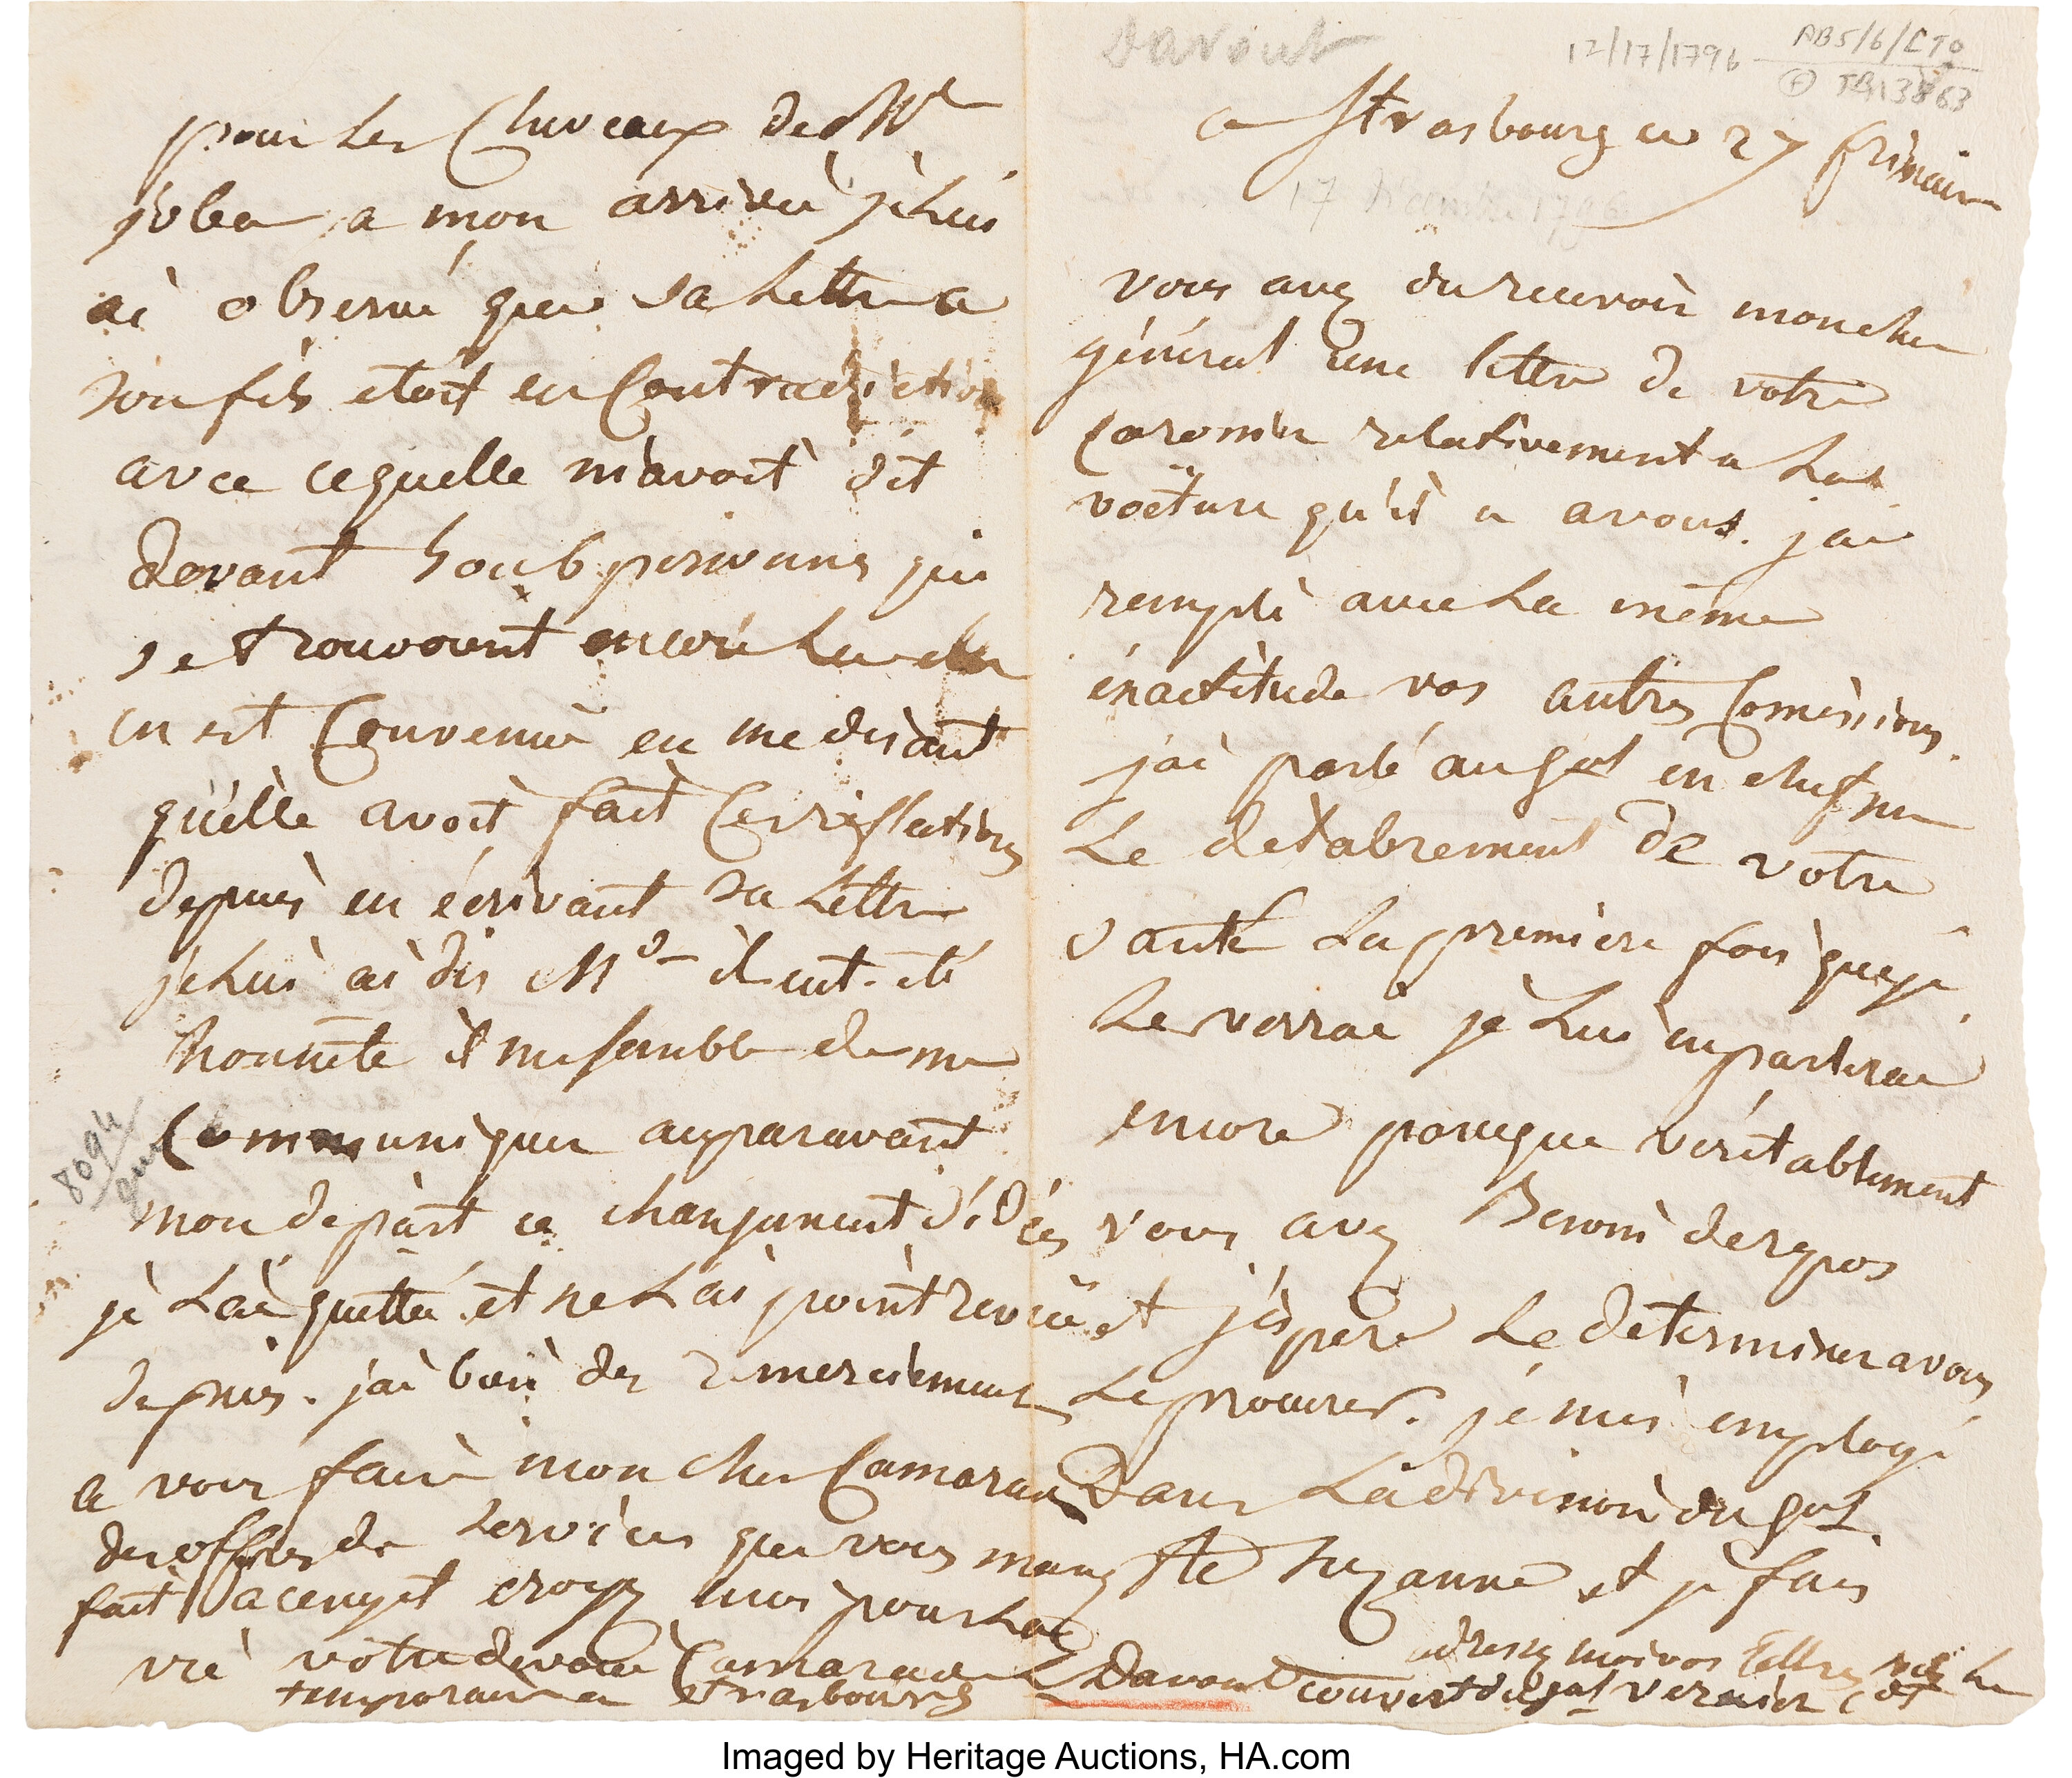 Davout
12/17/1796
AB5/6/CTO
TA13863
a Strasbourg ce 27 frimaire
17 Décembre 1796
vous avez du recevoir mon cher
général une lettre de votre
relativement a la
voiture qu'il a a vous. j'ai
rempli avec la même
énactitude vos autres Comissions.
j'ai parlé au gal en chef sur
Le detabrement de votre
santé La premiere fois que je
Le verrai je Lui en parlerai
encore parceque véritablement
vous avez Besoin de repos
et j'espere Le determiner a vous
Le procurer. je suis employé
Dans La division du gal.
Ste Suzanne et je fais
pour les Chevaux de Mde
a mon arrivée je Lui
ai observé que sa Lettre a
son fils etoit en Contradiction
avec ce quelle m'avoit dit
devant 5 ou 6 personnes qui
se trouvoient encore
en est Convenue en me disant
qu'elle avoit fait Ces reflections
depuis en écrivant sa Lettre
je Lui ai dis Md il eut été
honnete il me semble de me
Communiquer auparavant
mon depart ce changement d'idées
je L'ai quitté et ne L'ai point revue
depuis. j'ai bien des remerciements
a vous faire mon cher Camarade
des offres de services que vous m'avez
fait accept et croyez moi pour La
vie votre devoué Camarade
L Davout
adressez moi vos Lettres sous le
couvert du gal
temporaire a Strasbourg
8094
Imaged by Heritage Auctions, HA.com